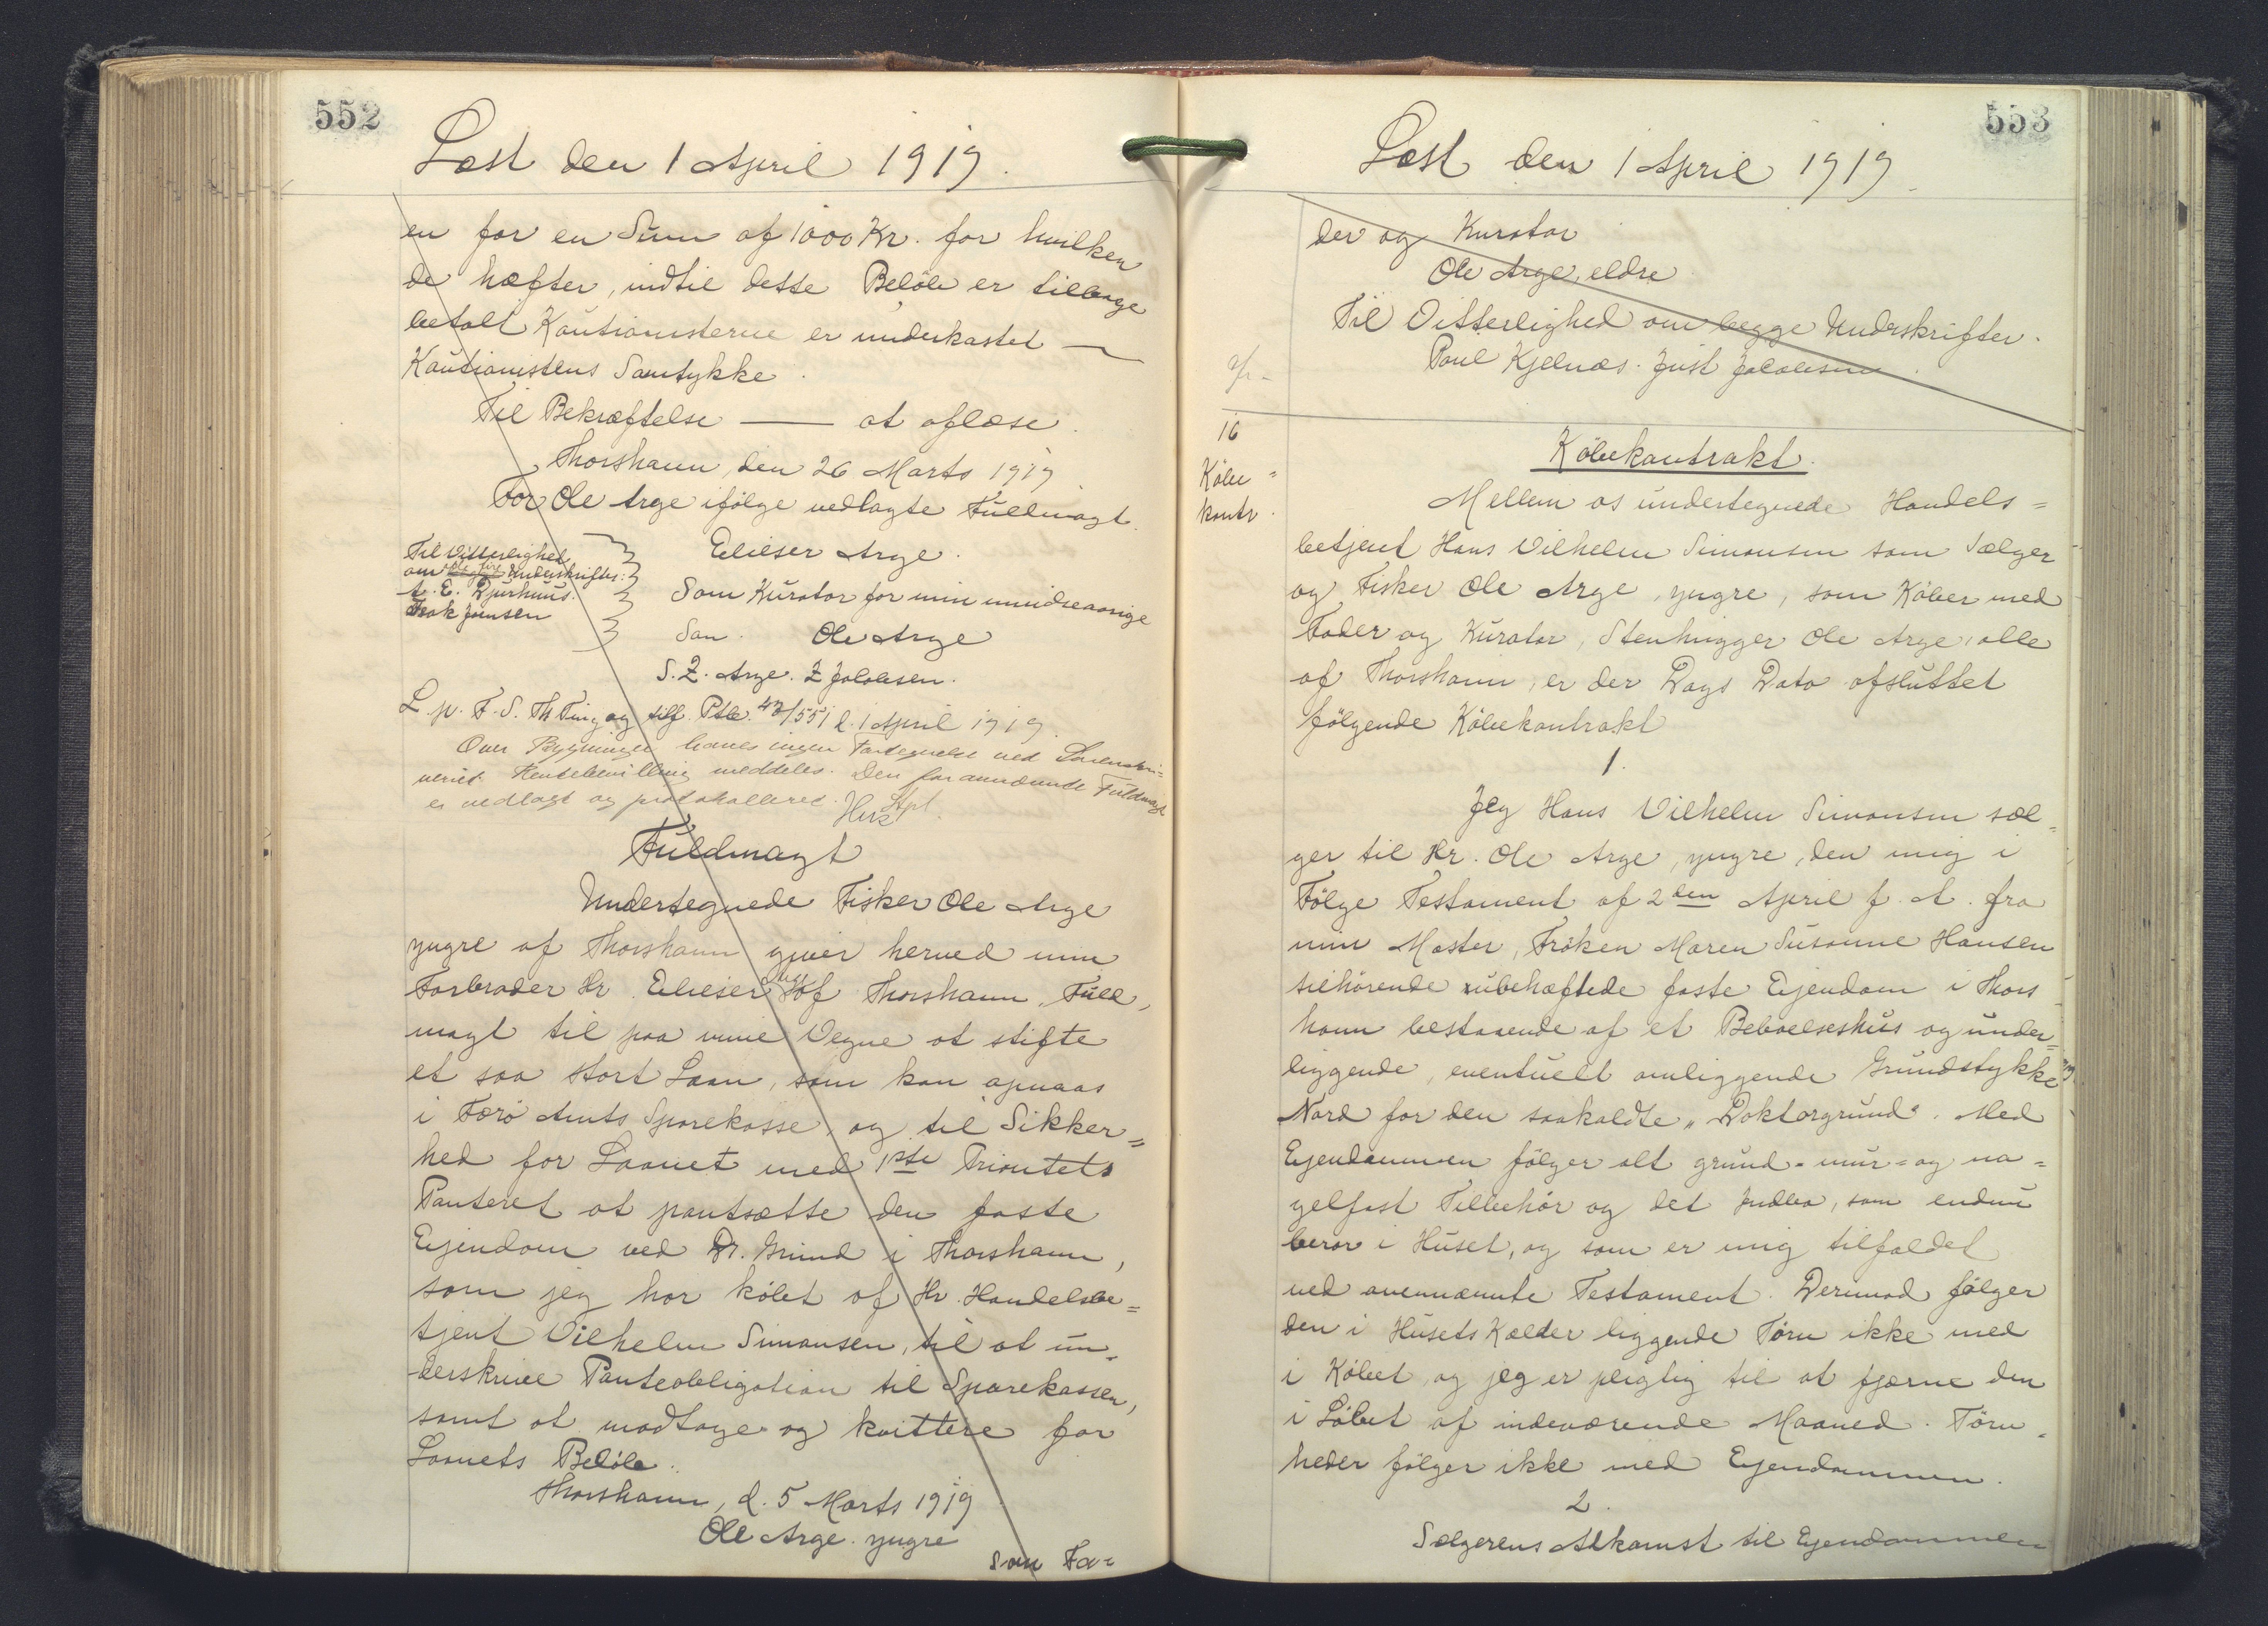 552
Læst den 1 April 1919.
en for en Sum af 1000 Kr. for hvilken
de hæfter, indtil dette Beløb er tilbage
betalt Kautionisterne er underkastet —
Kautionistens Samtykke.
Til Bekræftelse —— at aflæse.
Thorshavn, den 26 Marts 1919.
For Ole Arge ifølge vedlagte Fuldmagt.
Elieser Arge.
Til Vitterlighed
om Underskrifter:
A. E. Djurhuus.
Isak Joensen
Som Kurator for min mindreaarige
Søn. Ole Arge
S. Z. Arge. Z Jakobsen.
L. p. F. S. Th Ting og tilf. Ptbr. 47/551 d. 1 April 1919.
Over Bygninger haves ingen Fortegnelse ved Sorenskri=
veriet. Rentebevilling meddeles. Den forannævnte Fuldmagt
er vedlagt og protokolleret.
Fuldmagt
Undertegnede Fisker Ole Arge
yngre af Thorshavn giver herved min
Farbroder Hr. Elieser Arge af Thorshavn, Fuld,
magt til paa mine Vegne at stifte
et saa stort Laan, som kan opnaas
i Færø Amts Sparekasse, og til Sikker=
hed for Laanet med 1ste Prioritets
Panteret at pantsætte den faste
Ejendom ved Dr. Grund i Thorshavn,
som jeg har købt af Hr. Handelsbe=
tjent Vilhelm Simonsen, til at un=
derskrive Panteobligation til Sparekassen,
samt at modtage og kvittere for
Laanets Beløb.
Thorshavn, d. 5 Marts 1919
Ole Arge. yngre
Som Fa=
553
Læst den 1 April 1919.
der og Kurator
Ole Arge, eldre
Til Vitterlighed om begge Underskrifter.
Poul Kjelnæs. Just Jakobsen.
16
Købe=
kontr.
Købekontrakt.
Mellem os undertegnede Handels=
betjent Hans Vilhelm Simonsen som Sælger
og Fisker Ole Arge, yngre, som Køber med
Fader og Kurator, Stenhugger Ole Arge, alle
af Thorshavn, er der Dags Dato afsluttet
følgende Købekontrakt
1.
Jeg Hans Vilhelm Simonsen sæl=
ger til Hr. Ole Arge, yngre, den mig i
Følge Testament af 2den April f. A. fra
min Moster, Frøken Maren Susanne Hansen
tilhørende ubehæftede faste Ejendom i Thors
havn bestaaende af et Beboelseshus og under=
liggende, eventuelt omliggende Grundstykke
Nord for den saakaldte „Doktorgrund“. Med
Ejendommen følger alt grund- mur= og na=
gelfast Tilbehør og det Indbo, som endnu
beror i Huset, og som er mig tilfaldet
ved ovennævnte Testament. Derimod følger
den i Husets Kælder liggende Tørv ikke med
i Købet, og jeg er pligtig til at fjærne den
i Løbet af indeværende Maaned. Tørv=
heder følger ikke med Ejendommen.
2.
Sælgerens Adkomst til Ejendommen